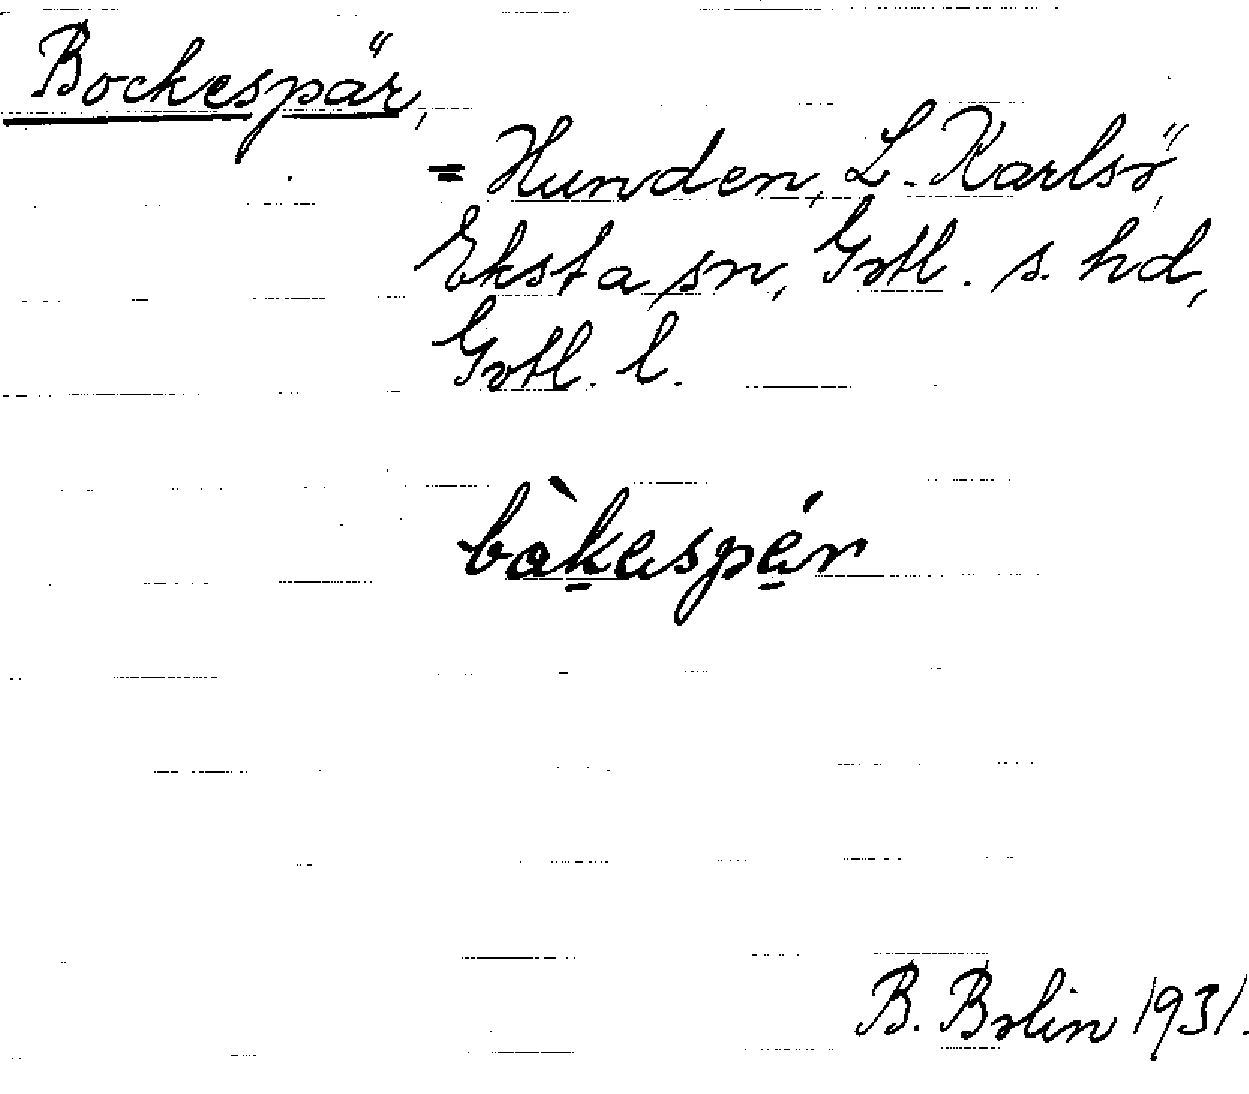 Bockespär,
= Hunden, L. Karlsö,
Eksta sn, Gotl. s. hd,
Gotl. l.
bòkaspér
B. Bolin 1931.